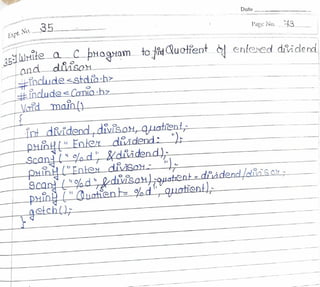 Date
Expt. No. 35
Page No. 43
35) Write a C program to find Quotient of entered dividend
and divisor
#include<stdio.h>
#include<conio.h>
Void main()
{
int dividend, divisor, quotient;
printf("Enter dividend: ");
scanf("%d", &dividend);
printf("Enter divisor: ");
scanf("%d", &divisor); quotient = dividend/divisor;
printf("Quotient = %d", quotient);
getch();
}